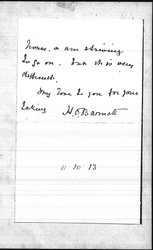 home, & are striving
to go on. But it is very
difficult.
My love to you for your
H. O. Barnett
11 10 13